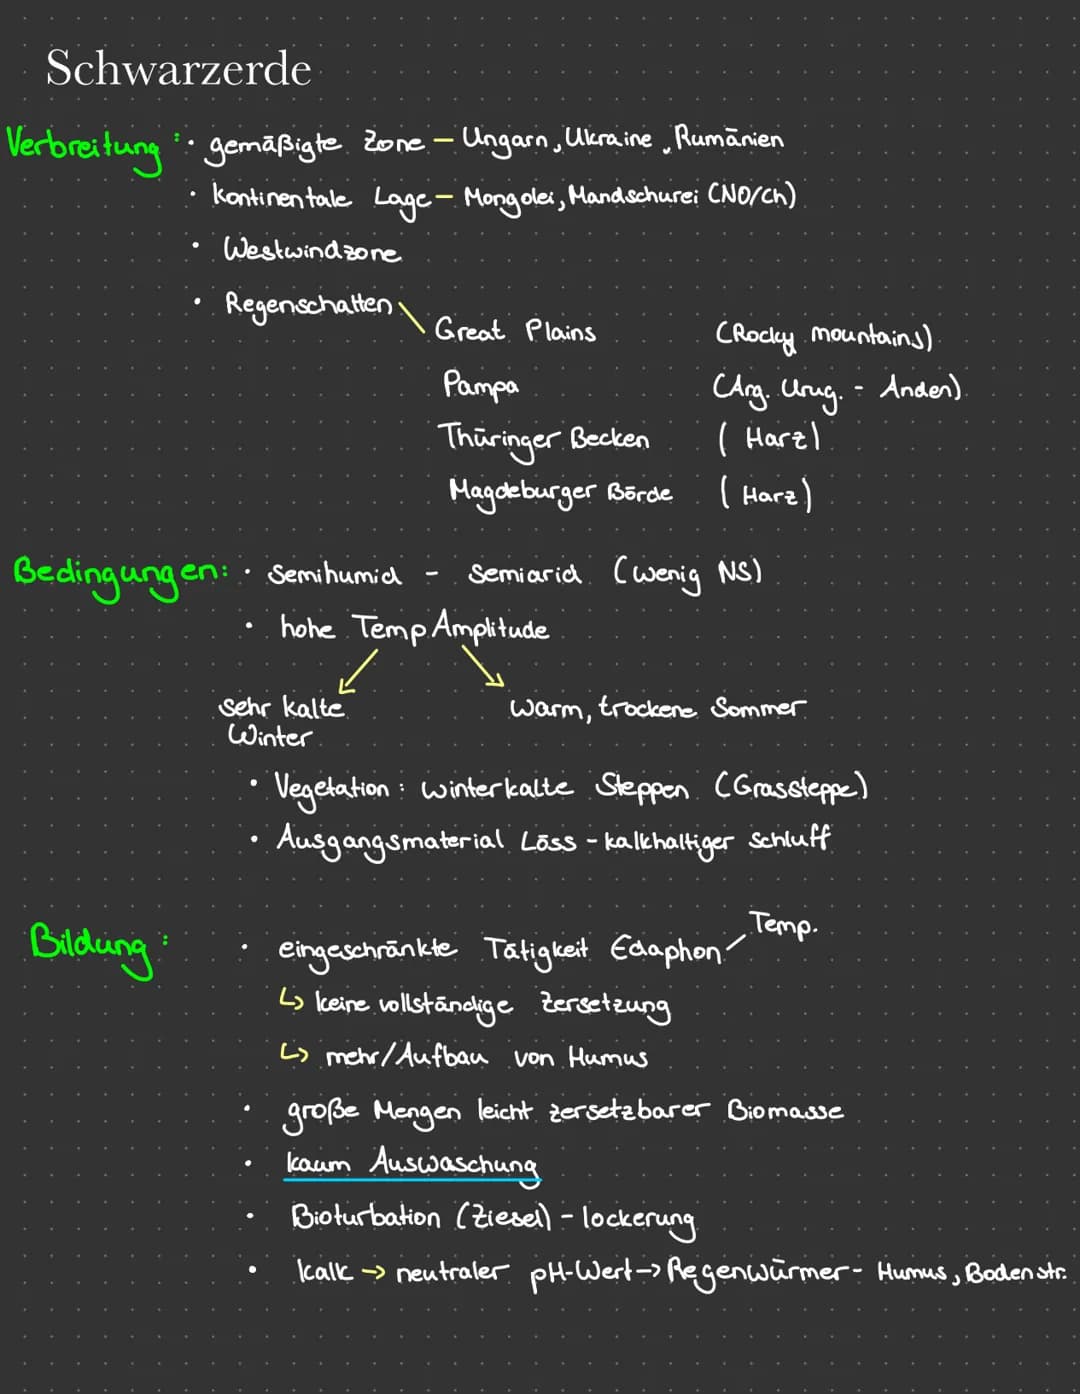 Schwarzerde
Verbreitung: • gemäßigte Zone – Ungarn, Ukraine, Rumänien
• kontinentale Lage – Mongolei, Mandschurei (NO/Ch)
• Westwindzone
• Regenschatten
Great Plains (Rocky mountains)
Pampa (Arg. Urug. - Anden)
Thüringer Becken (Harz)
Magdeburger Börde (Harz)
Bedingungen: • Semihumid - Semiarid (wenig NS)
• hohe Temp Amplitude
sehr kalte Winter
warm, trockene Sommer
• Vegetation: winterkalte Steppen (Grassteppe)
• Ausgangsmaterial Löss - kalkhaltiger Schluff
Bildung: • eingeschränkte Tätigkeit Edaphon Temp.
↳ keine vollständige Zersetzung
↳ mehr/Aufbau von Humus
• große Mengen leicht zersetzbarer Biomasse
• kaum Auswaschung
• Bioturbation (Ziesel) - lockerung
• kalk → neutraler pH-Wert → Regenwürmer - Humus, Bodenstr.